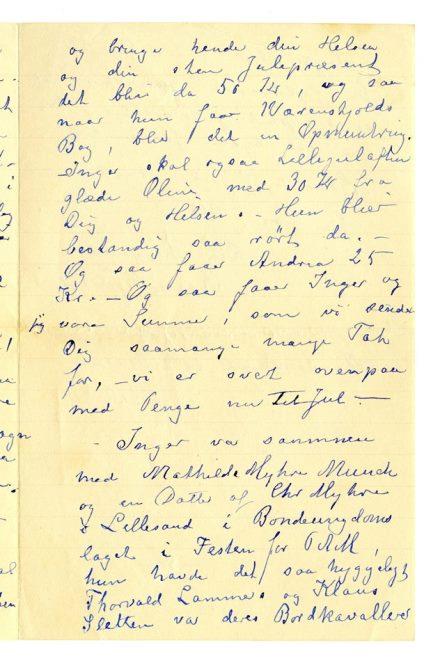 og bringe hende din Helsen
og din store Julepræsent
det blir da 50 Kr, og saa
naar hun faar Wærenskjolds
Bog, blir det en Opmuntring.
– Inger skal ogsaa Lillejulaften
glæde Oline med 30 Kr fra
Dig og Helsen. – Hun blir
bestandig saa rørt da. –
Og saa faar Andrea 25
Kr. – Og saa faar Inger og
jeg vore Summer, som vi sender
Dig saamange mange Tak
for, – vi er svært ovenpaa
med Penge nu til Jul –
– Inger var sammen
med Mathilde Myhre Munch
og en Datter af Chr Myhre
i Lillesand i Bondeungdoms
laget i Festen for
hun havde det saa hyggeligt
Thorvald Lammers og Klaus
Sletten var deres Bordkavallerer